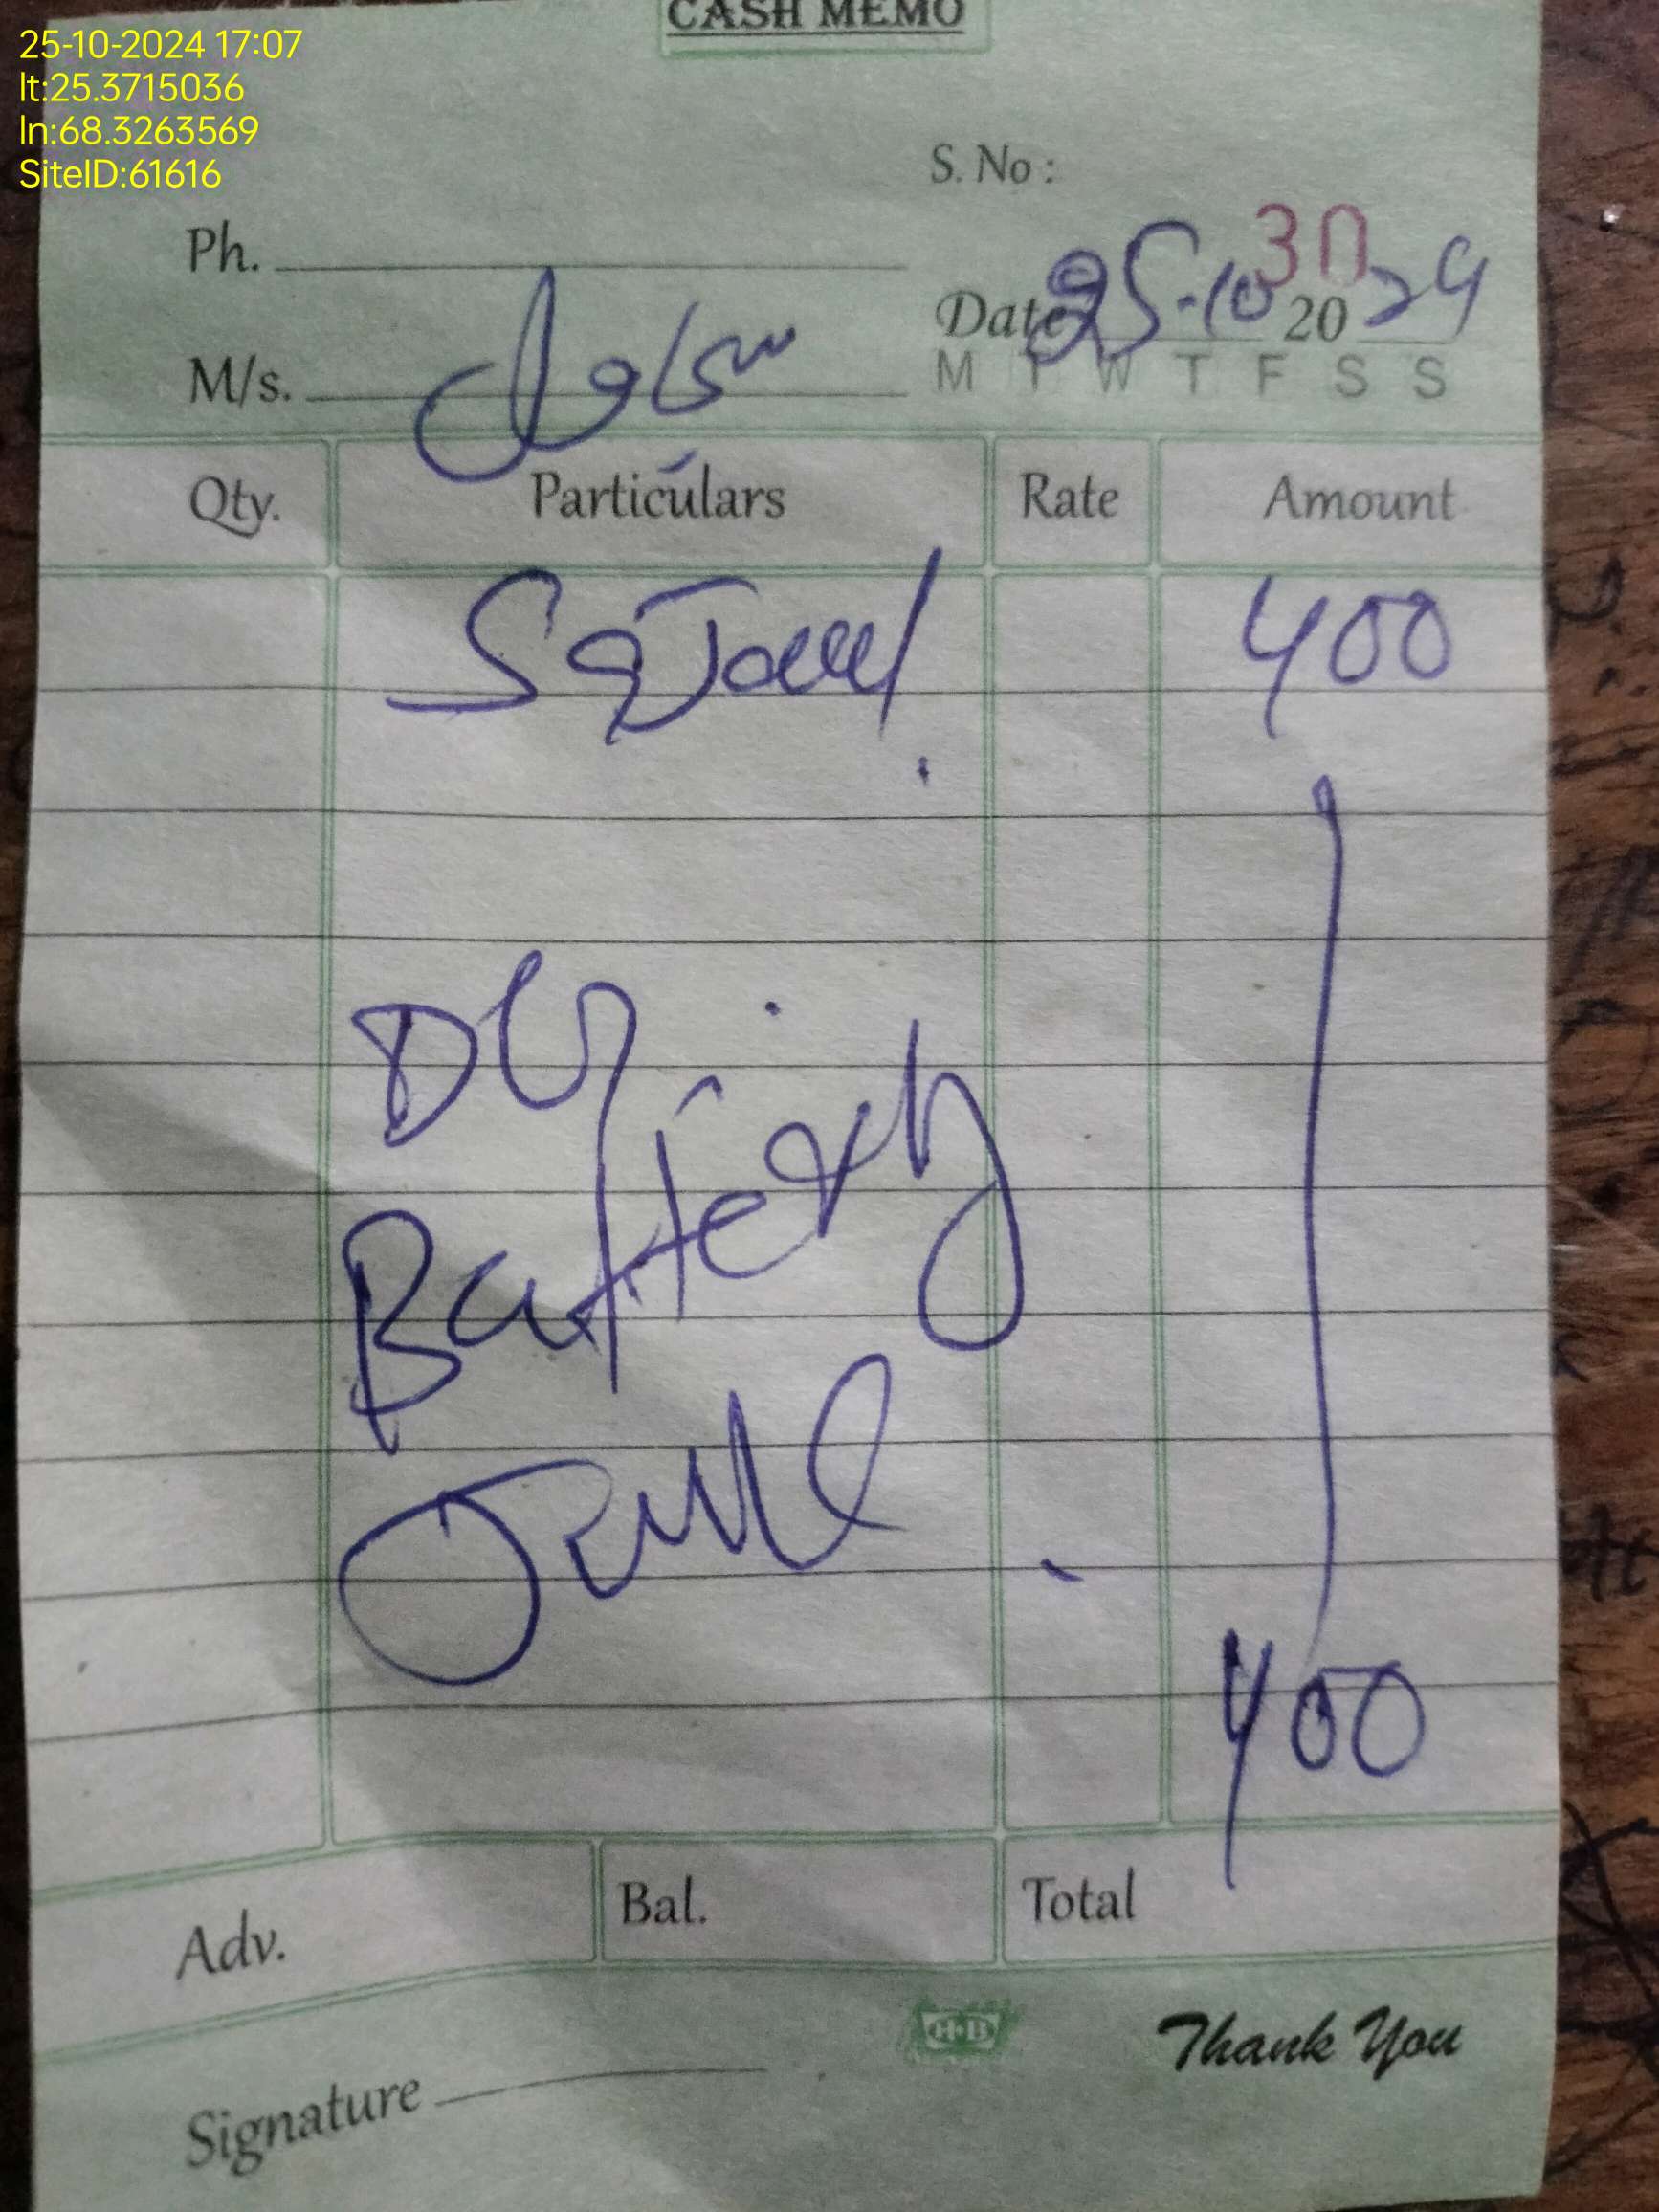 25-10-2024 17:07
lt:25.3715036
ln:68.3263569
SiteID:61616
CASH MEMO
S. No :
30
Ph.
Date 25-10 20 24
M/s.
M T W T F S S
Qty. Particulars Rate Amount
400
DG
Battery
400
Adv. Bal. Total
H·B
Thank You
Signature